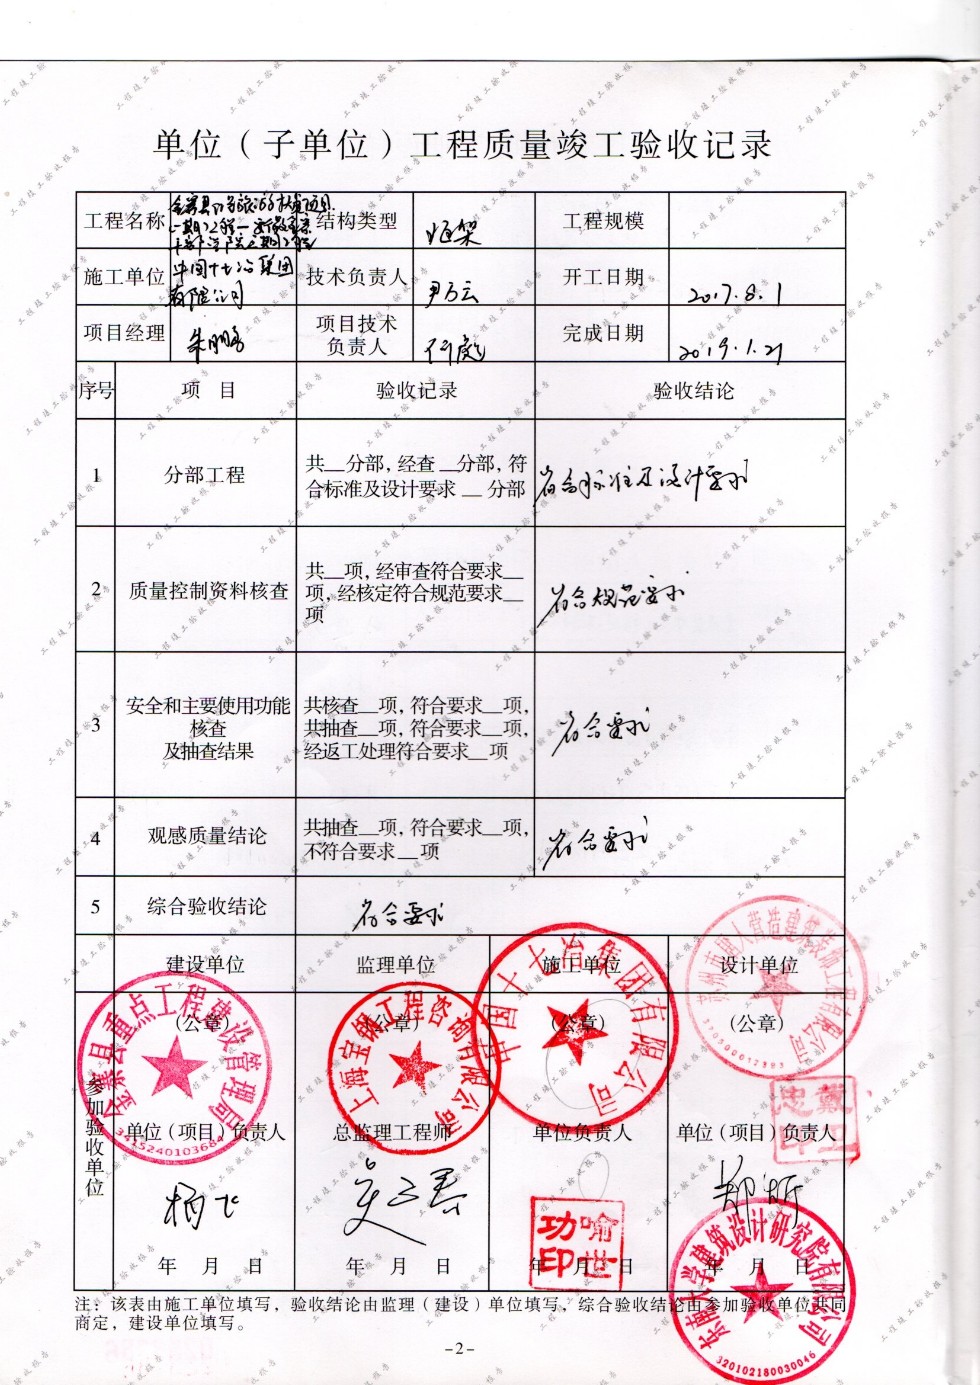 单位（子单位）工程质量竣工验收记录
工程名称 结构类型 框架 工程规模
施工单位 中国十七冶集团有限公司 技术负责人 尹万云 开工日期 2017.8.1
项目经理 朱鹏 项目技术负责人 完成日期 2019.1.21
序号 项 目 验收记录 验收结论
1 分部工程 共__分部，经查 __分部，符
合标准及设计要求 __ 分部
符合标准及设计要求
2 质量控制资料核查 共__项，经审查符合要求__
项，经核定符合规范要求__
项
符合规范要求
3 安全和主要使用功能
核查
及抽查结果
共核查__项，符合要求__项，
共抽查__项，符合要求__项，
经返工处理符合要求__项
符合要求
4 观感质量结论 共抽查__项，符合要求__项，
不符合要求__项
符合要求
5 综合验收结论 符合要求
参加验收单位
建设单位 监理单位 施工单位 设计单位
（公章） （公章） （公章） （公章）
金寨县重点工程建设管理局
3415240103684
上海宝钢工程咨询有限公司
中国十七冶集团有限公司
苏州市建筑装饰工程有限公司
单位（项目）负责人 总监理工程师 单位负责人 单位（项目）负责人
喻世功印
东南大学建筑设计研究院有限公司
320102180030046
年 月 日 年 月 日 年 月 日 年 月 日
注：该表由施工单位填写，验收结论由监理（建设）单位填写，综合验收结论由参加验收单位共同
商定，建设单位填写。
-2-
工程竣工验收报告